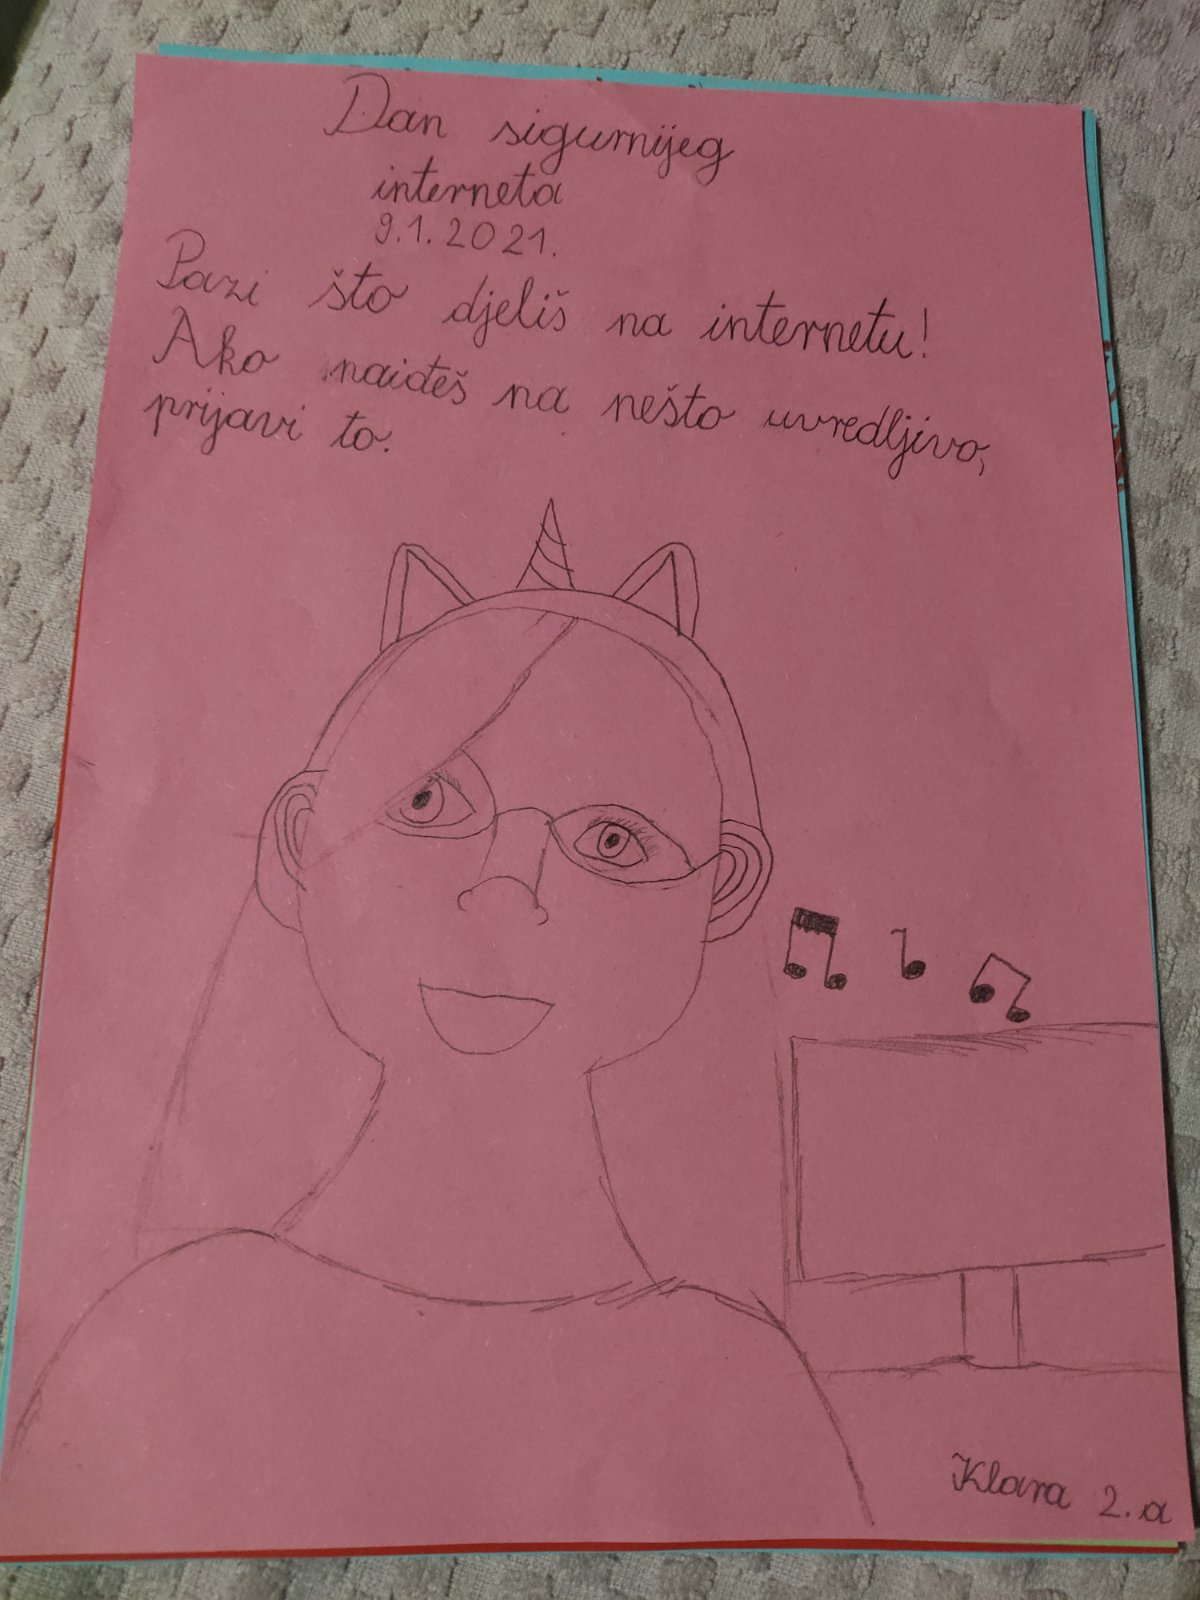 Dan sigurnijeg
interneta
9.1.2021.
Pazi što djeliš na internetu!
Ako naiđeš na nešto uvredljivo,
prijavi to.
Klara 2.a